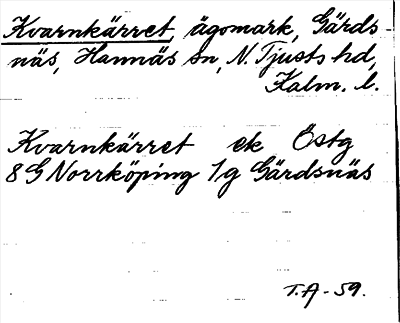 Kvarnkärret, ägomark, Gärds
näs, Hannäs sn, N. Tjusts hd,
Kalm. l.
Kvarnkärret ek Östg
8G Norrköping 1g Gärdsnäs
T.A-59.